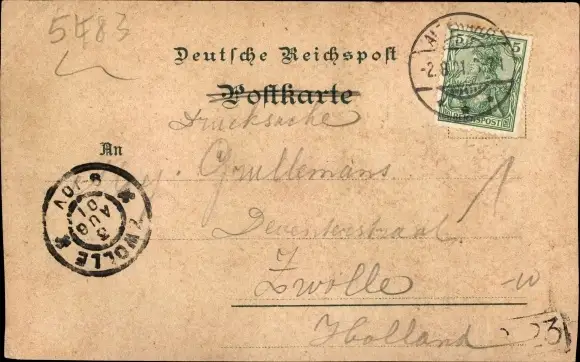 5483
Deutsche Reichspost
Postkarte
Drucksache
An
Grullemans
Deventerstraat
Zwolle
Holland
5
REICHSPOST
-2.8.01
ZWOLLE
3
AUG
01
23